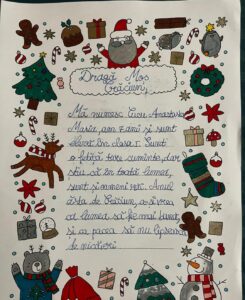 Dragă Moș
Crăciun,
Mă numesc Anastasia
Maria, am 7 ani și sunt
elevă în clasa I. Sunt
o fetiță tare cuminte, dar
știu că în toată lumea,
sunt și oameni răi. Anul
ăsta de Crăciun, aș vrea
ca lumea să fie mai bună,
și ca pacea să nu lipsească